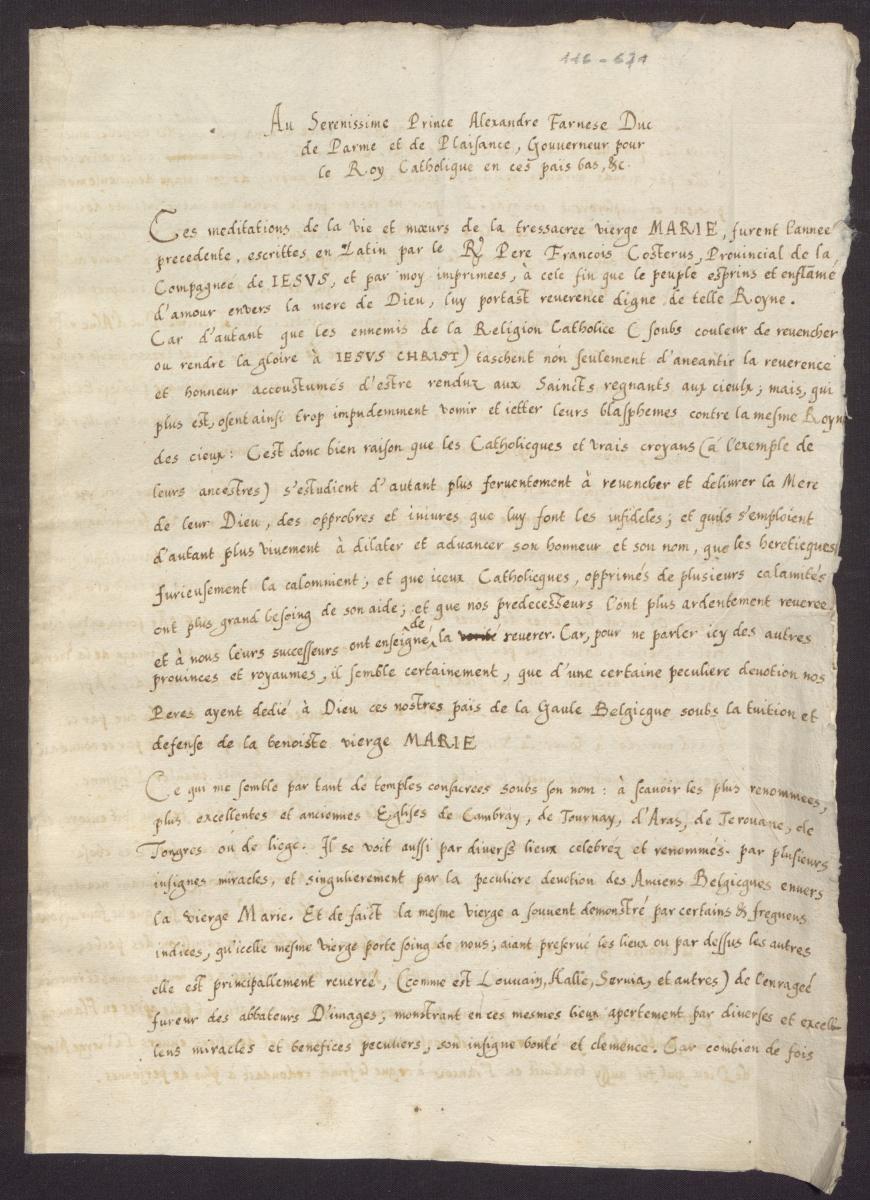 116 - 671
Au Serenissime Prince Alexandre Farnese Duc
de Parme et de Plaisance, Gouverneur pour
le Roy Catholique en ces pais bas, &c.
Ces meditations de la vie et mœurs de la tressacree vierge MARIE, furent l'annee
precedente, escrittes en Latin par le Rd Pere Francois Costerus, Provincial de la
Compagnee de IESVS, et par moy imprimees, à cele fin que le peuple esprins et enflamé
d'amour envers la mere de Dieu, luy portast reverence digne de telle Royne.
Car d'autant que les ennemis de la Religion Catholice (soubs couleur de revencher
ou rendre la gloire à IESVS CHRIST) taschent non seulement d'aneantir la reverence
et honneur accoustumés d'estre renduz aux Saincts regnants aux cieulx; mais, qui
plus est, osent ainsi trop impudemment vomir et ietter leurs blasphemes contre la mesme Royne
des cieux: C'est donc bien raison que les Catholicques et vrais croyans (à l'exemple de
leurs ancestres) s'estudient d'autant plus ferventement à revencher et delivrer la Mere
de leur Dieu, des opprobres et iniures que luy font les infideles; et quils s'emploient
d'autant plus vivement à dilater et advancer son honneur et son nom, que les hereticques
furieusement la calomnient; et que iceux Catholicques, opprimés de plusieurs calamités
ont plus grand besoing de son aide; et que nos predecesseurs l'ont plus ardentement reveree,
et à nous leurs successeurs ont enseigné de la reverer. Car, pour ne parler icy des autres
provinces et royaumes, il semble certainement, que d'une certaine peculiere devotion nos
Peres ayent dedié à Dieu ces nostres pais de la Gaule Belgicque soubs la tuition et
defense de la benoiste vierge MARIE
Ce qui me semble par tant de temples consacrees soubs son nom: à scavoir les plus renommees,
plus excellentes et anciennes Eglises de Cambray, de Tournay, d'Aras, de Terouane, de
Tongres où de liege. Il se voit aussi par divers lieux celebréz et renommés par plusieurs
insignes miracles, et singulierement par la peculiere devotion des Amiens Belgicques envers
la vierge Marie. Et de faict la mesme vierge a souvent demonstré par certains & frequens
indices, qu'icelle mesme vierge porte soing de nous; aiant preservé les lieux ou par dessus les autres
elle est principallement revereé, (comme est Louvain, Halle, Servia, et autres) de l'enrageé
fureur des abbateurs D'images; monstrant en ces mesmes lieux apertement par diverses et excel-
lens miracles et benefices peculiers, son insigne bonté et clemence. Car combien de fois